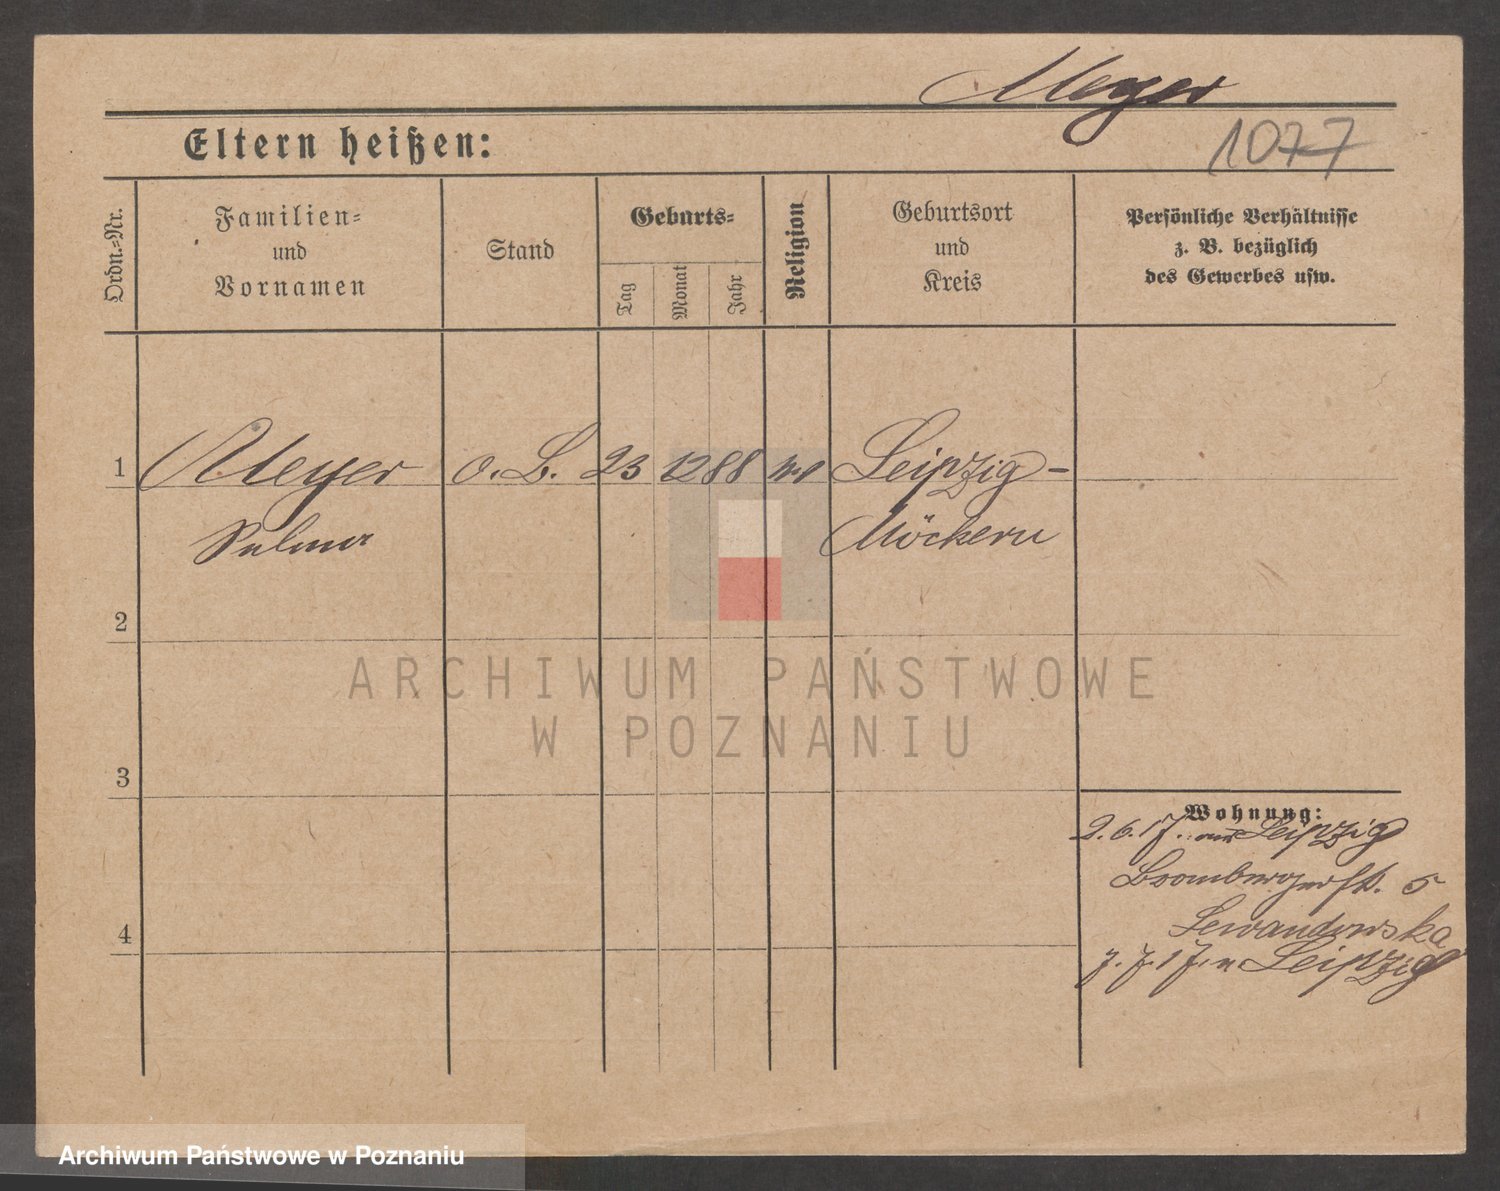 Meyer
Eltern heißen:
1077
Ordn.=Nr.
Familien=
und
Vornamen
Stand
Geburts=
Tag
Monat
Jahr
Religion
Geburtsort
und
Kreis
Persönliche Verhältnisse
z. B. bezüglich
des Gewerbes usw.
1 Meyer o. B. 23 12 88 Leipzig-
Möckern
2
3
4
Wohnung:
2.6.17. aus Leipzig
Brombergerstr. 5
Lewandowska
7.7.17. n Leipzig
ARCHIWUM PAŃSTWOWE
W POZNANIU
Archiwum Państwowe w Poznaniu